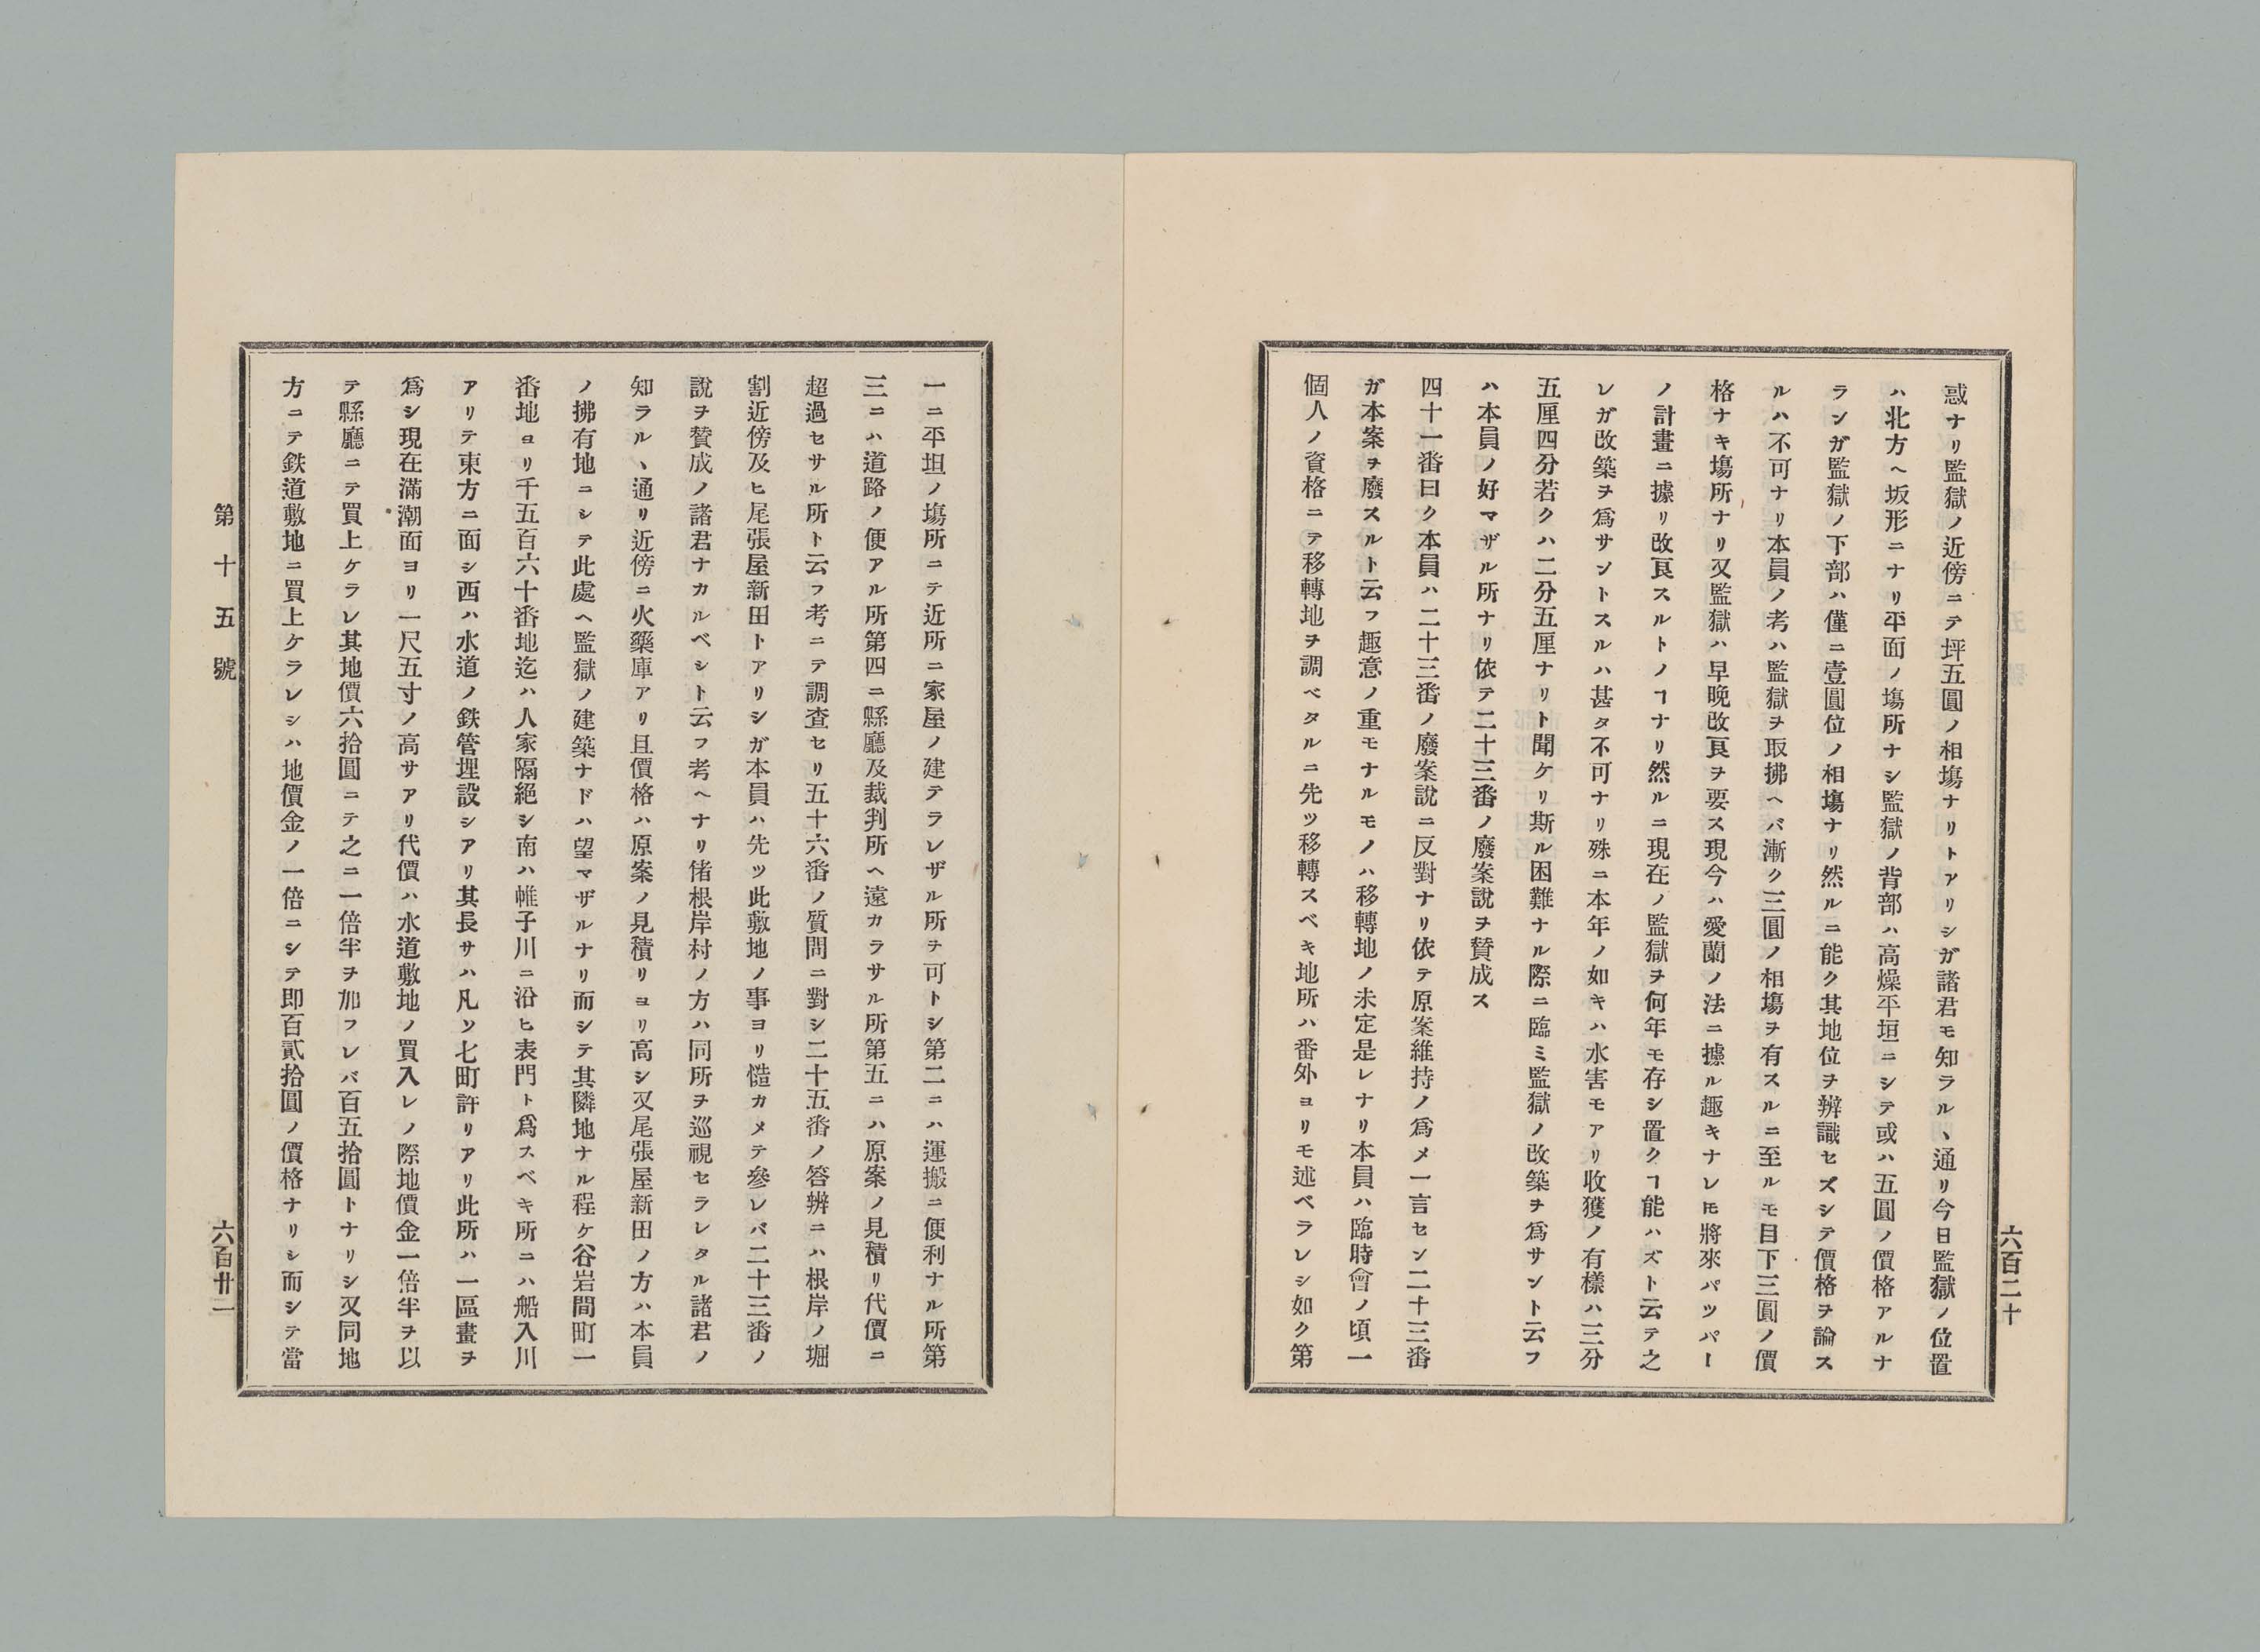 惑ナリ監獄ノ近傍ニテ坪五圓ノ相塲ナリトアリシガ諸君モ知ラルヽ通リ今日監獄ノ位置
ハ北方ヘ坂形ニナリ平面ノ塲所ナシ監獄ノ背部ハ高燥平垣ニシテ或ハ五圓ノ價格アルナ
ランガ監獄ノ下部ハ僅ニ壹圓位ノ相塲ナリ然ルニ能ク其地位ヲ辨識セズシテ價格ヲ論ス
ルハ不可ナリ本員ノ考ハ監獄ヲ取拂ヘバ漸ク三圓ノ相塲ヲ有スルニ至ルモ目下三圓ノ價
格ナキ塲所ナリ又監獄ハ早晩改良ヲ要ス現今ハ愛蘭ノ法ニ據ル趣キナレ𪜈將來パツパー
ノ計畫ニ據リ改良スルトノヿナリ然ルニ現在ノ監獄ヲ何年モ存シ置クヿ能ハズト云テ之
レガ改築ヲ爲サントスルハ甚タ不可ナリ殊ニ本年ノ如キハ水害モアリ收獲ノ有樣ハ三分
五厘四分若クハ二分五厘ナリト聞ケリ斯ル困難ナル際ニ臨ミ監獄ノ改築ヲ爲サント云フ
ハ本員ノ好マザル所ナリ依テ二十三番ノ廢案說ヲ賛成ス
四十一番曰ク本員ハ二十三番ノ廢案說ニ反對ナリ依テ原案維持ノ爲メ一言セン二十三番
ガ本案ヲ廢スルト云フ趣意ノ重モナルモノハ移轉地ノ未定是レナリ本員ハ臨時會ノ頃一
個人ノ資格ニテ移轉地ヲ調ベタルニ先ツ移轉スベキ地所ハ番外ヨリモ述ベラレシ如ク第
六百二十
一ニ平坦ノ塲所ニテ近所ニ家屋ノ建テラレザル所ヲ可トシ第二ニハ運搬ニ便利ナル所第
三ニハ道路ノ便アル所第四ニ縣廳及裁判所ヘ遠カラサル所第五ニハ原案ノ見積リ代價ニ
超過セサル所ト云フ考ニテ調査セリ五十六番ノ質問ニ對シ二十五番ノ答辨ニハ根岸ノ堀
割近傍及ヒ尾張屋新田トアリシガ本員ハ先ツ此敷地ノ事ヨリ慥カメテ參レバ二十三番ノ
說ヲ賛成ノ諸君ナカルベシト云フ考ヘナリ偖根岸村ノ方ハ同所ヲ巡視セラレタル諸君ノ
知ラルヽ通リ近傍ニ火藥庫アリ且價格ハ原案ノ見積リヨリ高シ又尾張屋新田ノ方ハ本員
ノ拂有地ニシテ此處ヘ監獄ノ建築ナドハ望マザルナリ而シテ其隣地ナル程ケ谷岩間町一
番地ヨリ千五百六十番地迄ハ人家隔絕シ南ハ帷子川ニ沿ヒ表門ト爲スベキ所ニハ船入川
アリテ東方ニ面シ西ハ水道ノ鉄管埋設シアリ其長サハ凡ソ七町許リアリ此所ハ一區畫ヲ
爲シ現在滿潮面ヨリ一尺五寸ノ高サアリ代價ハ水道敷地ノ買入レノ際地價金一倍半ヲ以
テ縣廳ニテ買上ケラレ其地價六拾圓ニテ之ニ一倍半ヲ加フレバ百五拾圓トナリシ又同地
方ニテ鉄道敷地ニ買上ケラレシハ地價金ノ一倍ニシテ即百貳拾圓ノ價格ナリシ而シテ當
第十五號
六百廿一